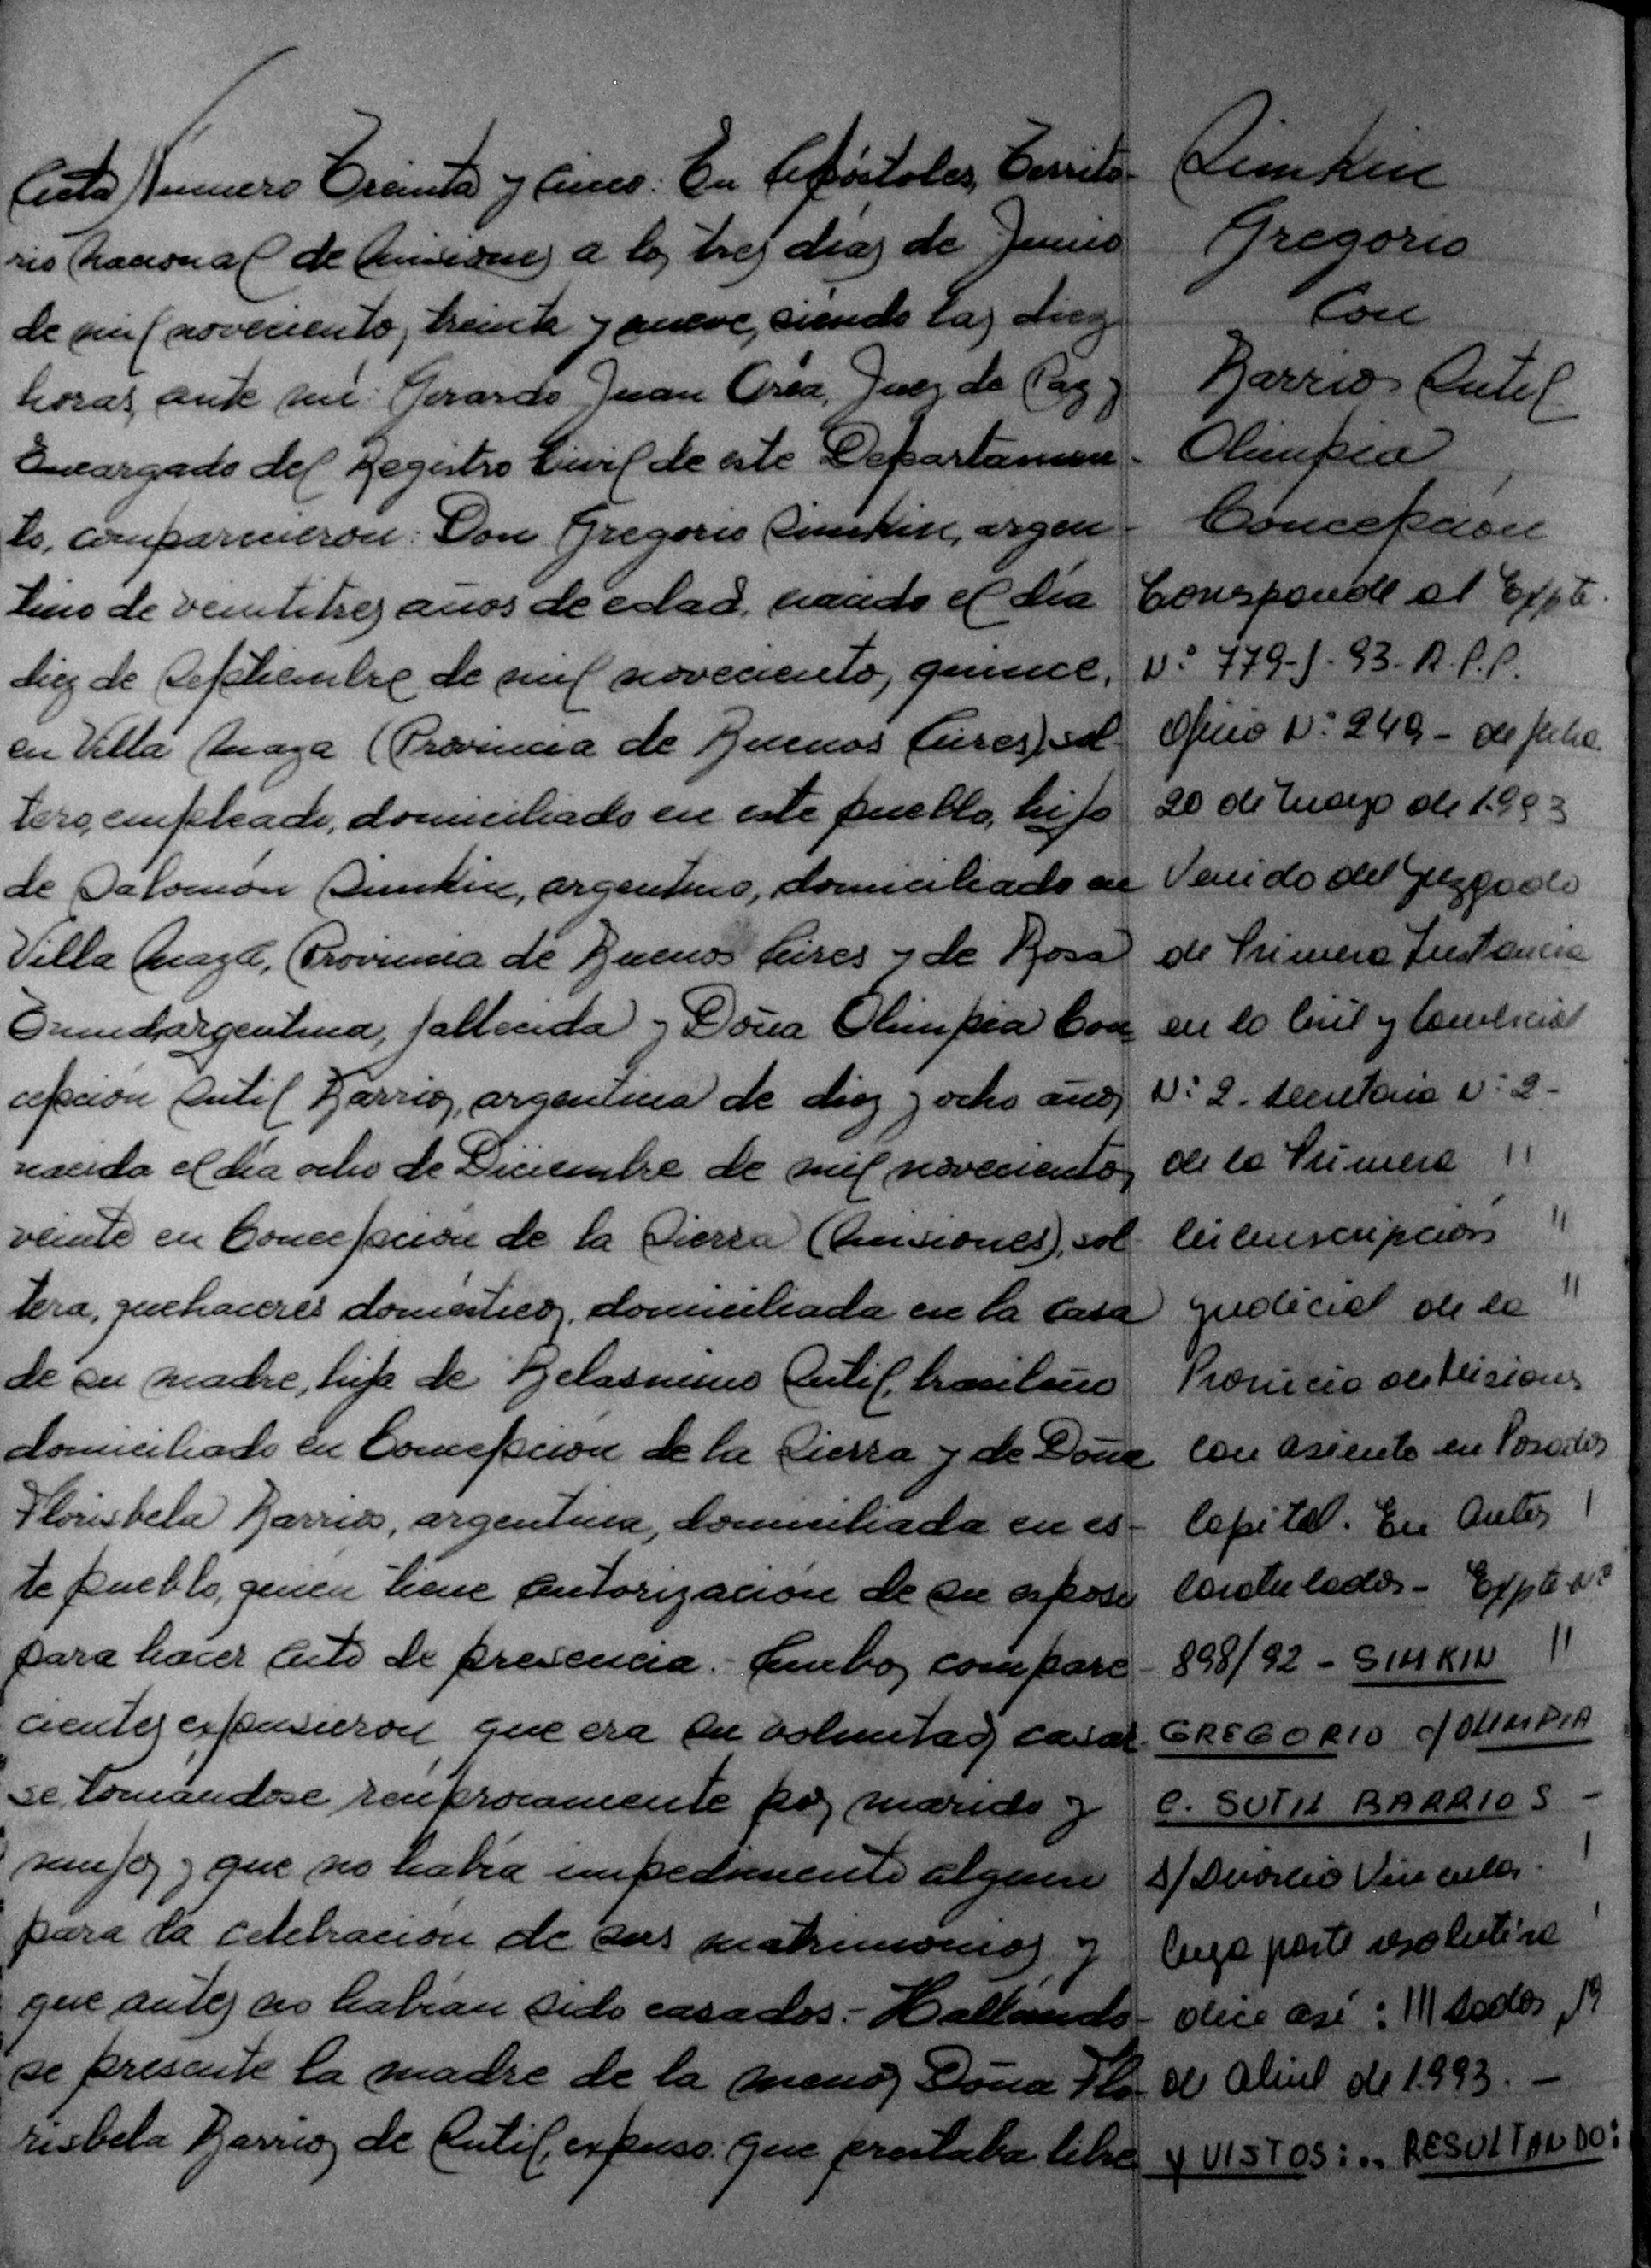 Acta Número Treinta y Cinco: En Apóstoles, Territo-
rio Nacional de Misiones a los tres días de Junio
de mil novecientos treinta y nueve, siendo las diez
horas, ante mí: Gerardo Juan Orea, Juez de Paz y
Encargado del Registro Civil de este Departamen-
to, comparecieron: Don Gregorio Simkin, argen-
tino de veintitres años de edad, nacido el día
diez de Septiembre de mil novecientos quince,
en Villa Maza (Provincia de Buenos Aires), sol-
tero, empleado, domiciliado en este pueblo, hijo
de Salomón Simkin, argentino, domiciliado en
Villa Maza, Provincia de Buenos Aires y de Rosa
argentina, fallecida y Doña Olimpia Con-
cepción Sutil Barrios, argentina de diez y ocho años
nacida el día ocho de Diciembre de mil novecientos
veinte en Concepción de la Sierra (Misiones), sol-
tera, quehaceres domésticos, domiciliada en la casa
de su madre, hija de Belasmino Sutil, brasileño
domiciliado en Concepción de la Sierra y de Doña
Florisbela Barrios, argentina, domiciliada en es-
te pueblo, quien tiene autorización de su esposo
para hacer acto de presencia.- Ambos compare-
cientes expusieron que era su voluntad casar-
se tomándose recíprocamente por marido y
mujer y que no había impedimento alguno
para la celebración de sus matrimonios y
que antes no habían sido casados.- Hallándo-
se presente la madre de la menor Doña Flo-
risbela Barrios de Sutil, expuso: que prestaba libre
Simkin
Gregorio
Con
Barrios Sutil
Olimpia
Concepción
Corresponde al Expte.
Nº 779-J-93-R.P.P.
Oficio Nº 249 - de fecha
20 de Mayo de 1.993
Venido del Juzgado
de Primera Instancia
en lo Civil y Comercial
Nº 2. Secretaria Nº 2-
de la Primera "
Circunscripción "
Judicial de la "
Provincia de Misiones
con asiento en Posadas
Capital. En Autos
caratulados - Expte Nº
898/92 - SIMKIN "
GREGORIO c/ OLIMPIA
C. SUTIL BARRIOS -
S/ Divorcio Vincular.
Cuya parte resolutiva
dice así: ///sadas, 19
de Abril de 1.993. -
Y VISTOS:.. RESULTANDO: